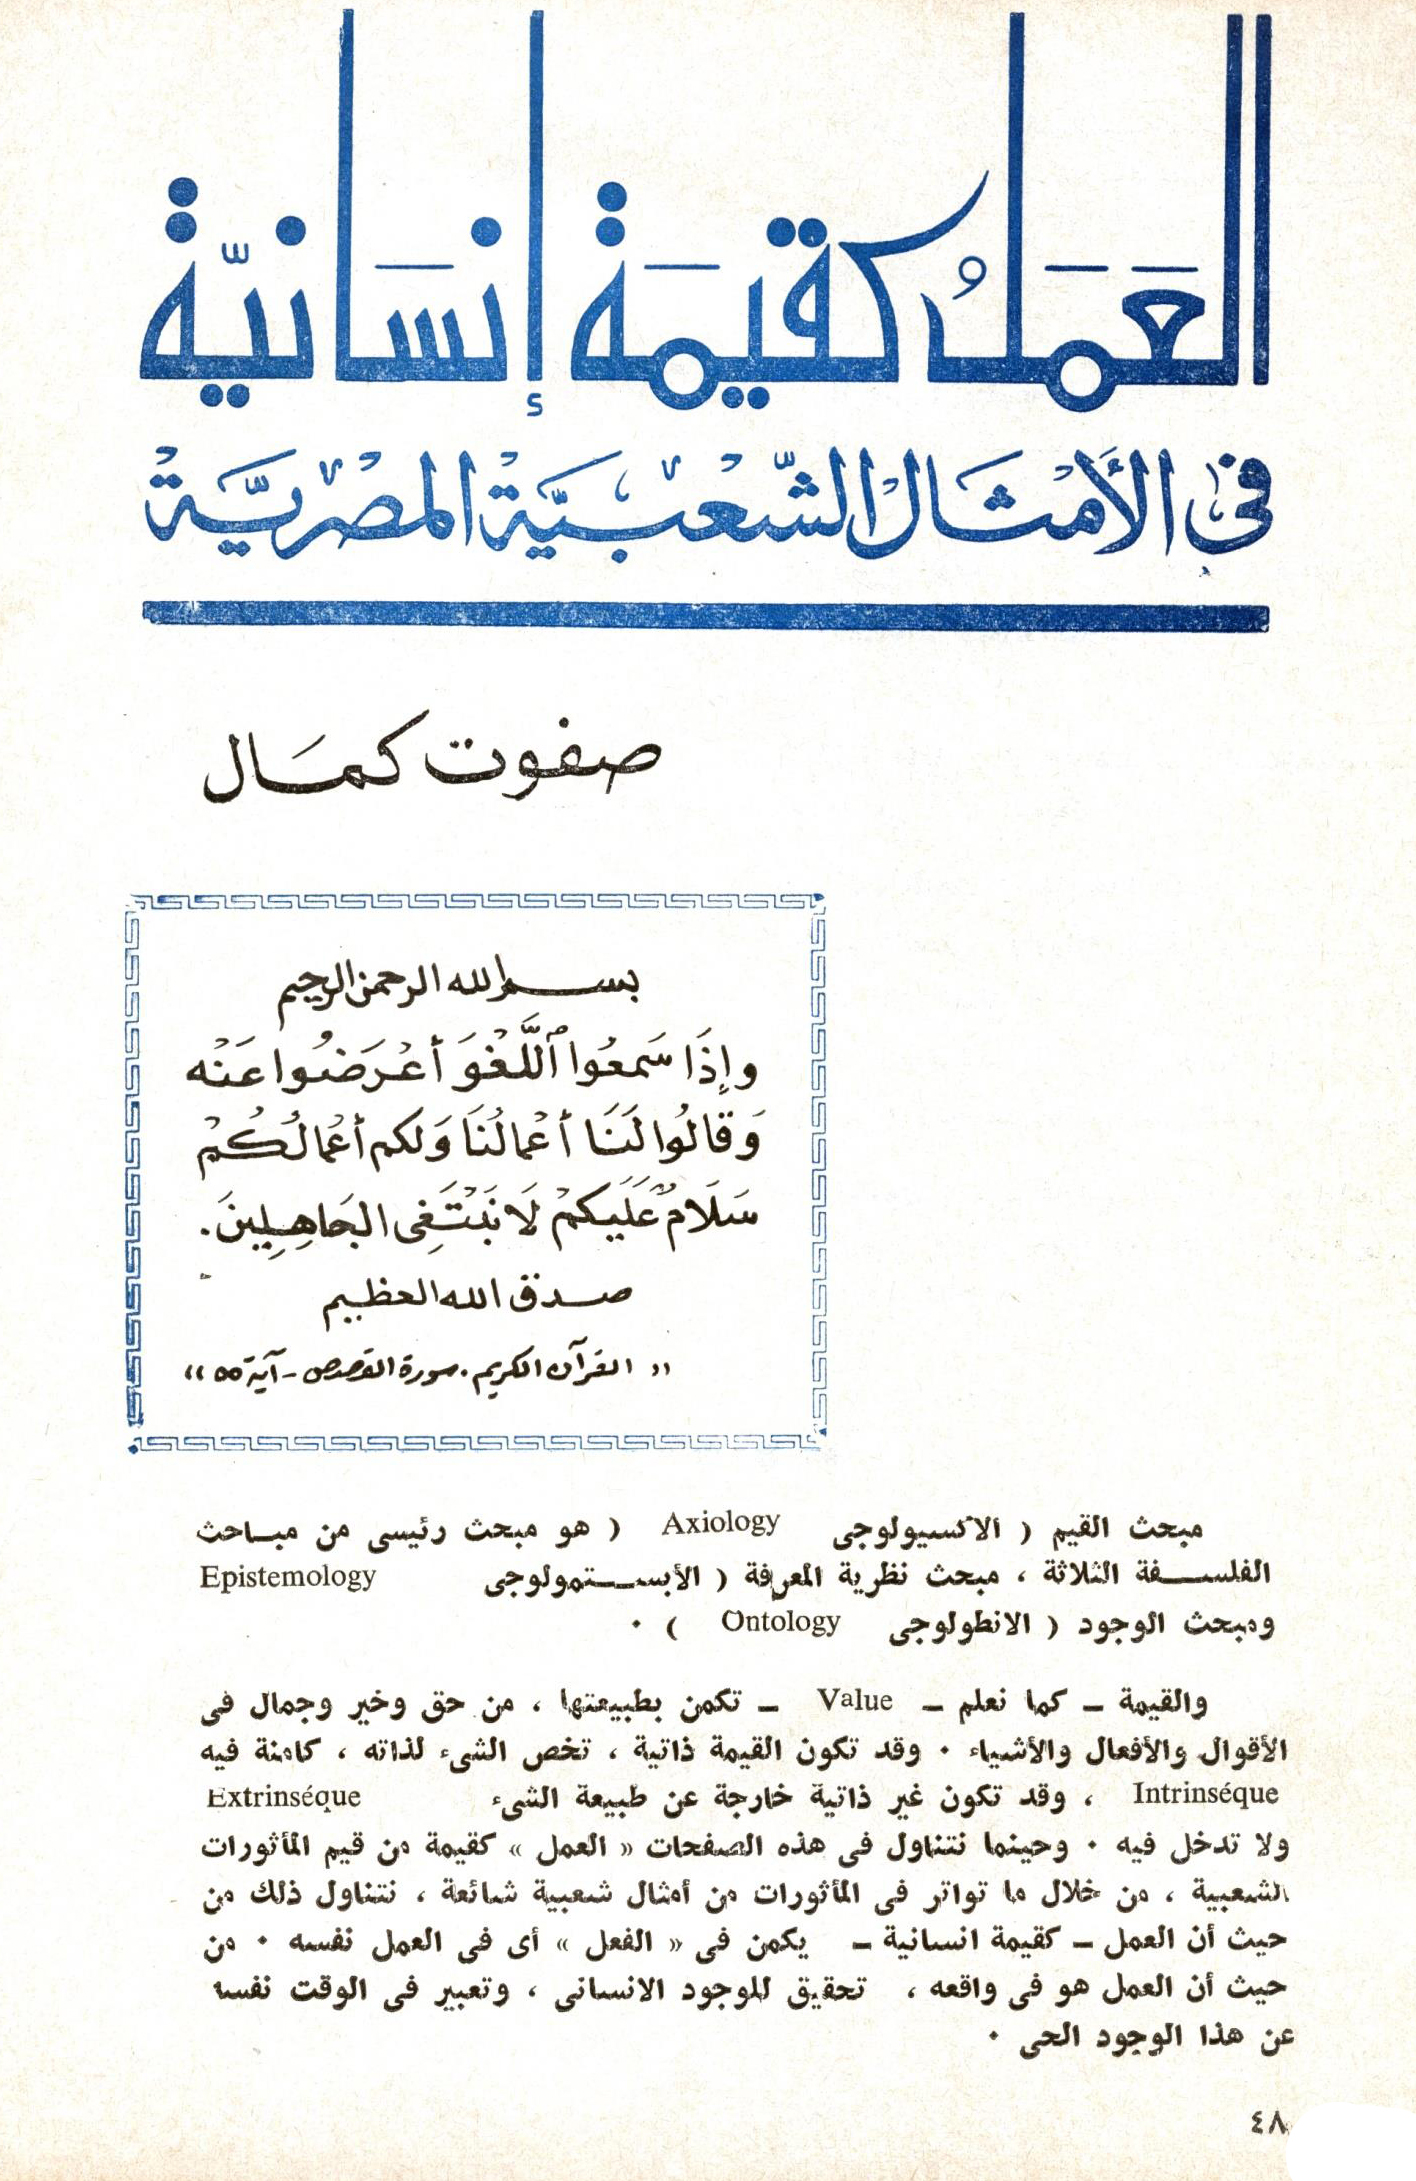 العَمَلُ كقيمَة إنسَانيّة
فى الأمْثَالْ الشّعْبيَّةْ المصْريَّةْ
صفوت كمَال
بسم الله الرحمن الرحيم
وإِذَا سَمعُوا ٱللَّغْوَ أعْرَضُوا عَنْه
وَقَالُوا لَنَا أعْمالُنَا وَلكم أعْمالُكُمْ
سَلَامٌ عَلَيكمْ لَا نَبْتَغِى الجَاهِلِينَ.
صدق الله العظيم
« القرآن الكريم . سورة القصص - آية ٥٥ »
مبحث القيم ( الاكسيولوجى Axiology ( هو مبحث رئيسى من مباحث
الفلسفة الثلاثة ، مبحث نظرية المعرفة ( الأبستمولوجى Epistemology
ومبحث الوجود ( الانطولوجى Ontology ) ٠
والقيمة ـ كما نعلم ـ Value ـ تكمن بطبيعتها ، من حق وخير وجمال فى
الأقوال والأفعال والأشياء ٠ وقد تكون القيمة ذاتية ، تخص الشىء لذاته ، كامنة فيه
Intrinséque ، وقد تكون غير ذاتية خارجة عن طبيعة الشىء Extrinséque
ولا تدخل فيه ٠ وحينما نتناول فى هذه الصفحات « العمل » كقيمة من قيم المأثورات
الشعبية ، من خلال ما تواتر فى المأثورات من أمثال شعبية شائعة ، نتناول ذلك من
حيث أن العمل ـ كقيمة انسانية ـ يكمن فى « الفعل » أى فى العمل نفسه ٠ من
حيث أن العمل هو فى واقعه ، تحقيق للوجود الانسانى ، وتعبير فى الوقت نفسه
عن هذا الوجود الحى ٠
٤٨